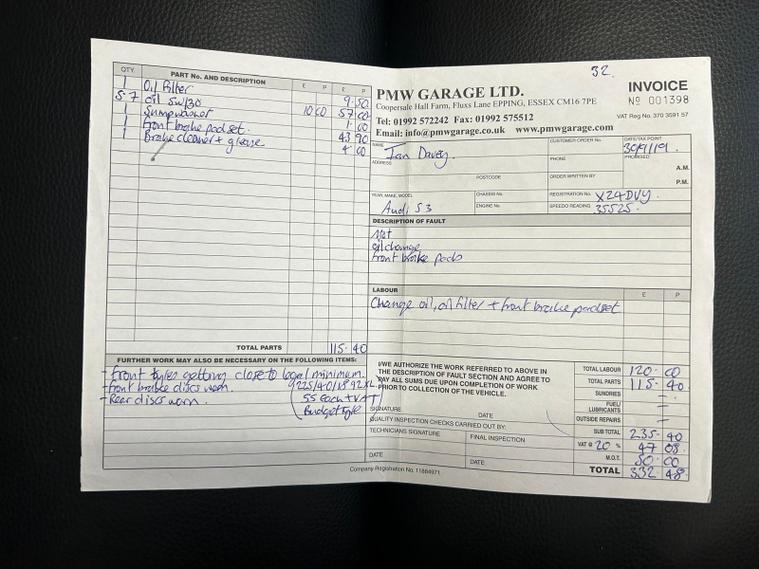 32.
QTY PART No. AND DESCRIPTION £ P £ P
1 Oil Filter 9.50
5.7 Oil 5w/30 10 00 57 00
1 Sumpwasher 1 00
1 Front brake pad set. 43 90
1 Brake cleaner + grease 4 00
TOTAL PARTS 115.40
FURTHER WORK MAY ALSO BE NECESSARY ON THE FOLLOWING ITEMS:
- Front tyres getting close to legal minimum.
- Front brake discs worn. (225/40/18 92XL
- Rear discs worn. 55 each + VAT
Budget tyre)
PMW GARAGE LTD.
Coopersale Hall Farm, Fluxs Lane EPPING, ESSEX CM16 7PE
Tel: 01992 572242 Fax: 01992 575512
Email: info@pmwgarage.co.uk www.pmwgarage.com
INVOICE
No 001398
VAT Reg No. 370 3591 57
NAME Ian Davey. CUSTOMER ORDER No. DATE/TAX POINT 30/9/19
ADDRESS PHONE PROMISED A.M.
POSTCODE ORDER WRITTEN BY P.M.
YEAR, MAKE, MODEL Audi S3 CHASSIS No. REGISTRATION No. X24DVY.
ENGINE No. SPEEDO READING 35525.
DESCRIPTION OF FAULT
Mot
oil change
front brake pads
LABOUR £ P
Change oil, oil filter + front brake padset
I/WE AUTHORIZE THE WORK REFERRED TO ABOVE IN
THE DESCRIPTION OF FAULT SECTION AND AGREE TO
PAY ALL SUMS DUE UPON COMPLETION OF WORK
PRIOR TO COLLECTION OF THE VEHICLE.
SIGNATURE DATE
QUALITY INSPECTION CHECKS CARRIED OUT BY:
TECHNICIANS SIGNATURE FINAL INSPECTION
DATE DATE
TOTAL LABOUR 120.00
TOTAL PARTS 115.40
SUNDRIES —
FUEL/LUBRICANTS —
OUTSIDE REPAIRS —
SUB TOTAL 235.40
VAT @ 20 % 47 08.
M.O.T. 50.00
TOTAL 332 48
Company Registration No. 11884971